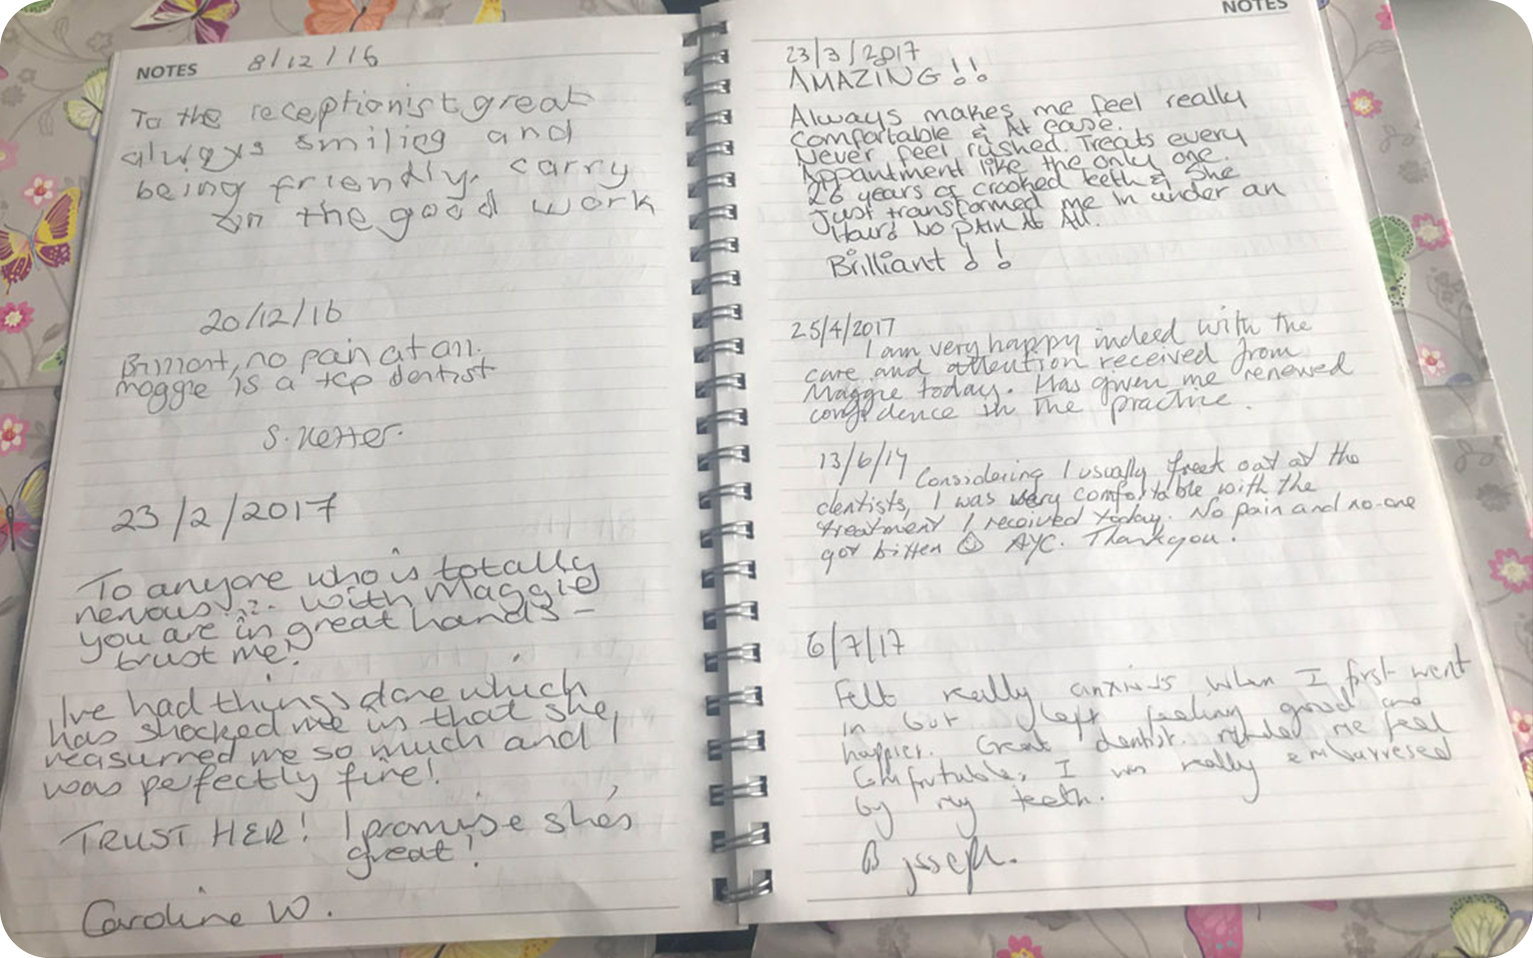 NOTES 8/12/16
To the receptionist great
always smiling and
being friendly, carry
on the good work
20/12/16
Brilliant, no pain at all.
maggie is a top dentist
S.
23/2/2017
To anyone who is totally
nervous... with Maggie
you are in great hands -
trust me!
I've had things done which
has shocked me in that she
reasurred me so much and I
was perfectly fine!
TRUST HER! I promise she's
great!
Caroline W.
NOTES
23/3/2017
AMAZING!!
Always makes me feel really
Comfortable & At ease.
Never feel rushed. Treats every
Appantment like the only one.
26 years of crooked teeth & She
Just transformed me in under an
Hour! No PAIN At All.
Brilliant!!
25/4/2017
I am very happy indeed with the
care and attention received from
Maggie today. Has given me renewed
confidence in the practice.
13/6/17 Considering I usually freak out at the
dentists, I was very comfortable with the
treatment I received today. No pain and no-one
got bitten ☺ AYC. Thankyou.
6/7/17
Felt really anxious when I first went
in but left feeling good and
happier. Great dentist. me feel
Comfortable, I was really embarresed
by my teeth.
B Joseph.